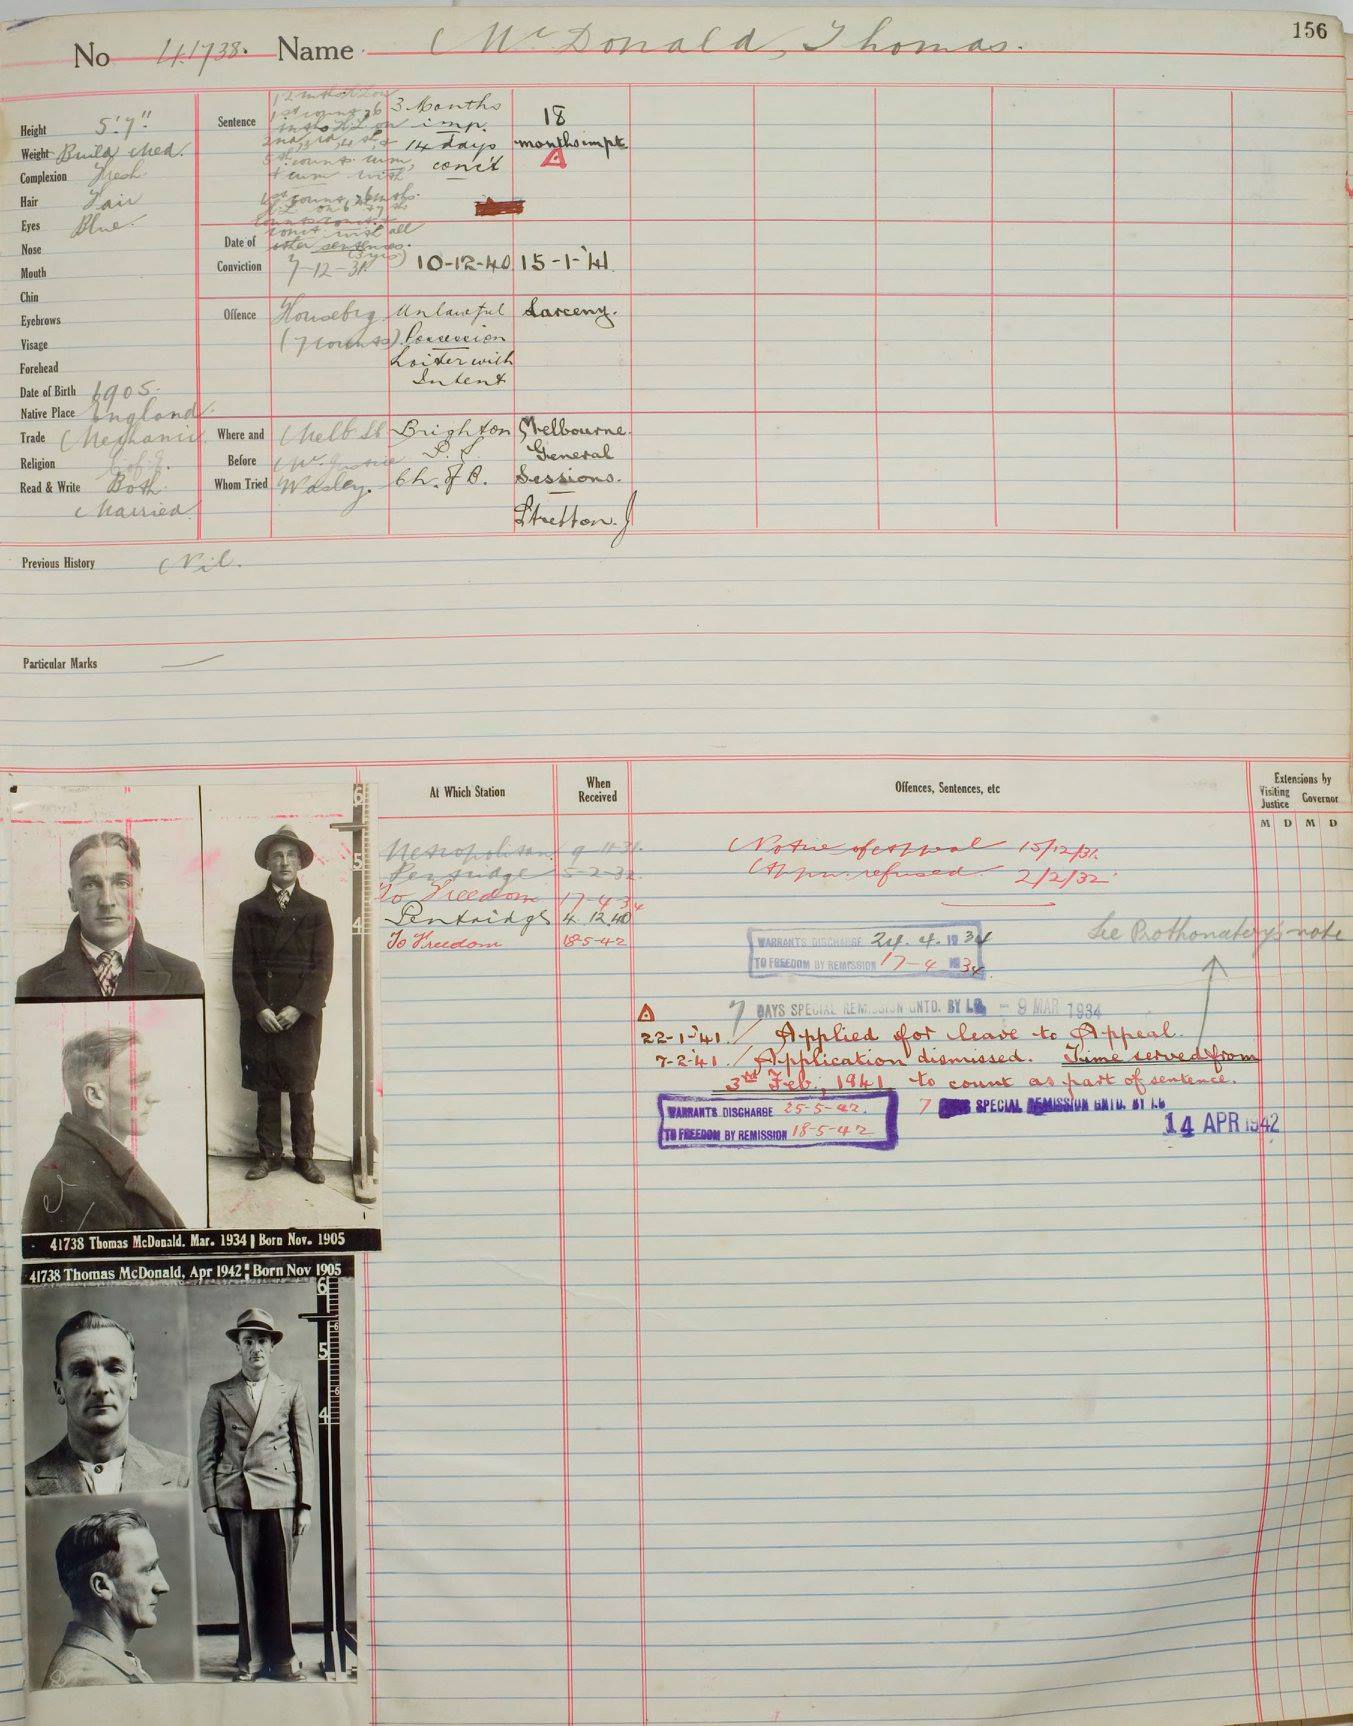 156
No 41738. Name McDonald, Thomas.
Height 5'.7"
Weight Build Med.
Complexion Fresh
Hair Fair
Eyes Blue.
Nose
Mouth
Chin
Eyebrows
Visage
Forehead
Date of Birth 1905.
Native Place England.
Trade Mechanic
Religion C of E.
Read & Write Both
Married
Sentence
1st count, 6
mths H.L. on
5th counts cum,
& cum with
1st count, 6 mths
conc. with all
other sentences.
(3 yrs)
3 Months
imp.
14 days
conc't
18
months impt
A
Date of
Conviction
7-12-31.
10-12-40
15-1-'41
Offence
Housebrg.
(7 counts)
Unlawful
Possession
Loiter with
Intent
Larceny.
Where and
Before
Whom Tried
Melb
Mr. Justice
Wasley.
Brighton
P. S.
Ch. of B.
Melbourne.
General
Sessions.
Stretton. J
Previous History Nil.
Particular Marks —
At Which Station
When
Received
Offences, Sentences, etc
Extensions by
Visiting
Justice
Governor
M D M D
Metropolitan 9-11-31.
Pentridge 5-2-32
To Freedom 17-4-34
Pentridge 4.12.40
To Freedom 18-5-42
Notice of Appeal 15/12/31.
Appn. refused 2/2/32
See Prothonatery's note
WARRANTS DISCHARGE 24. 4. 1934
TO FREEDOM BY REMISSION 17-4 1934
7 DAYS SPECIAL REMISSION GNTD. BY I.G. - 9 MAR 1934
A
22-1-'41. / Applied for leave to Appeal.
7-2-'41. / Application dismissed. Time served from
3rd Feb., 1941 to count as part of sentence.
WARRANTS DISCHARGE 25-5-42.
TO FREEDOM BY REMISSION 18-5-42
7 DAYS SPECIAL REMISSION GNTD. BY I.G
14 APR 1942
6
5
4
41738 Thomas McDonald. Mar. 1934 Born Nov. 1905
41738 Thomas McDonald, Apr 1942 Born Nov 1905
6
6
5
6
4